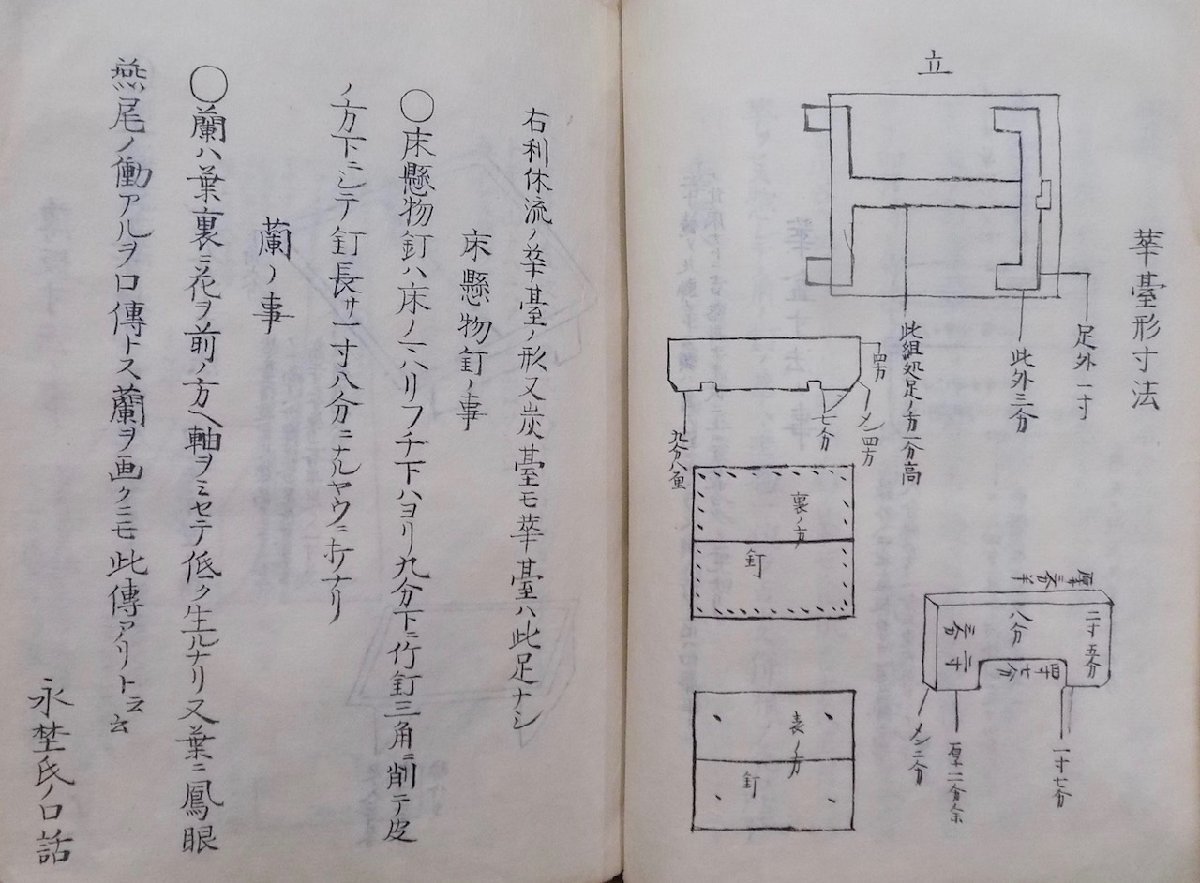 華臺形寸法
立
足外一寸
此外三分
此組処足ノ方一分高
四方
メン四方
七分
九分八重
裏ノ方
釘
表ノ方
釘
厚三分半
二寸五分
八分
厚七分
二寸三分
一寸七分
厚二分余
メン二分
右利休流ノ華臺ノ形又炭臺モ華臺ハ此足ナシ
床懸物釘ノ事
〇床懸物釘ハ床ノ天ハリフチ下ハヨリ九分下ニ竹釘三角ニ削テ皮
ノ方下ニシテ釘長サ一寸八分ニナルヤウニ打ナリ
蘭ノ事
〇蘭ハ葉裏ニ花ヲ前ノ方ヘ軸ヲミセテ低ク生ルナリ又葉ニ鳳眼
燕尾ノ働アルヲ口傳トス蘭ヲ画クニモ此傳アリト云云
永埜氏ノ口話